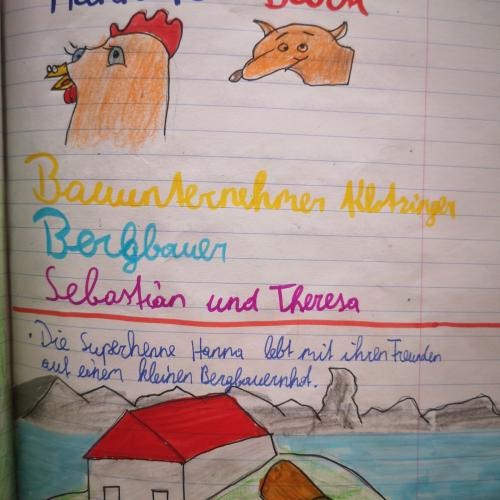 Bauunternehmer Klotzinger
Bergbauer
Sebastian und Theresa
Die Superhenne Hanna lebt mit ihren Freunden
auf einem kleinen Bergbauernhof.